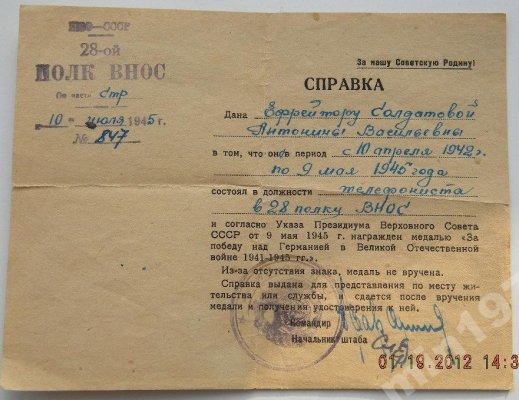 НКО—СССР
28-ой
ПОЛК ВНОС
По части Стр
10 " июля 1945 г.
№ 847
За нашу Советскую Родину!
СПРАВКА
Дана Ефрейтору Солдатовой
Антонины Васильевны
в том, что он в период с 10 апреля 1942 г.
по 9 мая 1945 года
состоял в должности телефониста
в 28 полку ВНОС
и согласно Указа Президиума Верховного Совета
СССР от 9 мая 1945 г. награжден медалью «За
победу над Германией в Великой Отечественной
войне 1941-1945 гг.».
Из-за отсутствия знака, медаль не вручена.
Справка выдана для представления по месту жи-
тельства или службы, и сдается после вручения
медали и получения удостоверения к ней.
Командир
Начальник штаба
01/19/2012 14:3